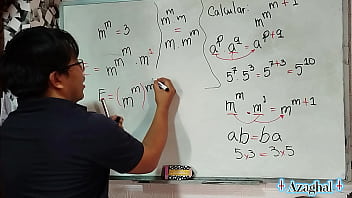 mᵐ = 3
= m^(mᵐ · m¹)
E = (mᵐ)ᵐ
=
m · mᵐ
Calcular: m^(m^(m+1))
aᵖ a^q = a^(p+q)
5⁷ 5³ = 5⁷⁺³ = 5¹⁰
mᵐ · m¹ = mᵐ⁺¹
ab = ba
5x3 = 3x5
Azaghal